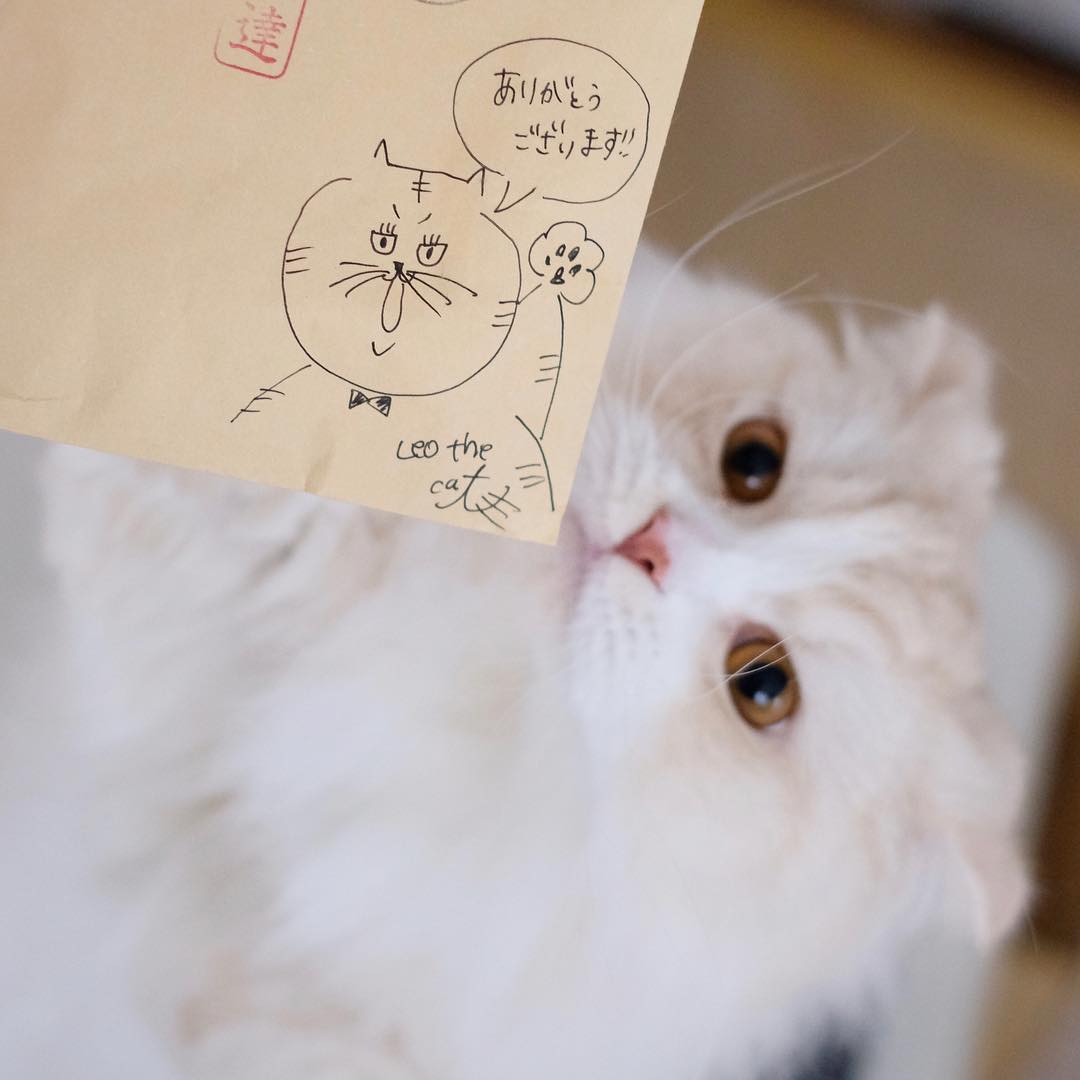 達
ありがとう
ございます!!
Leo the
cat